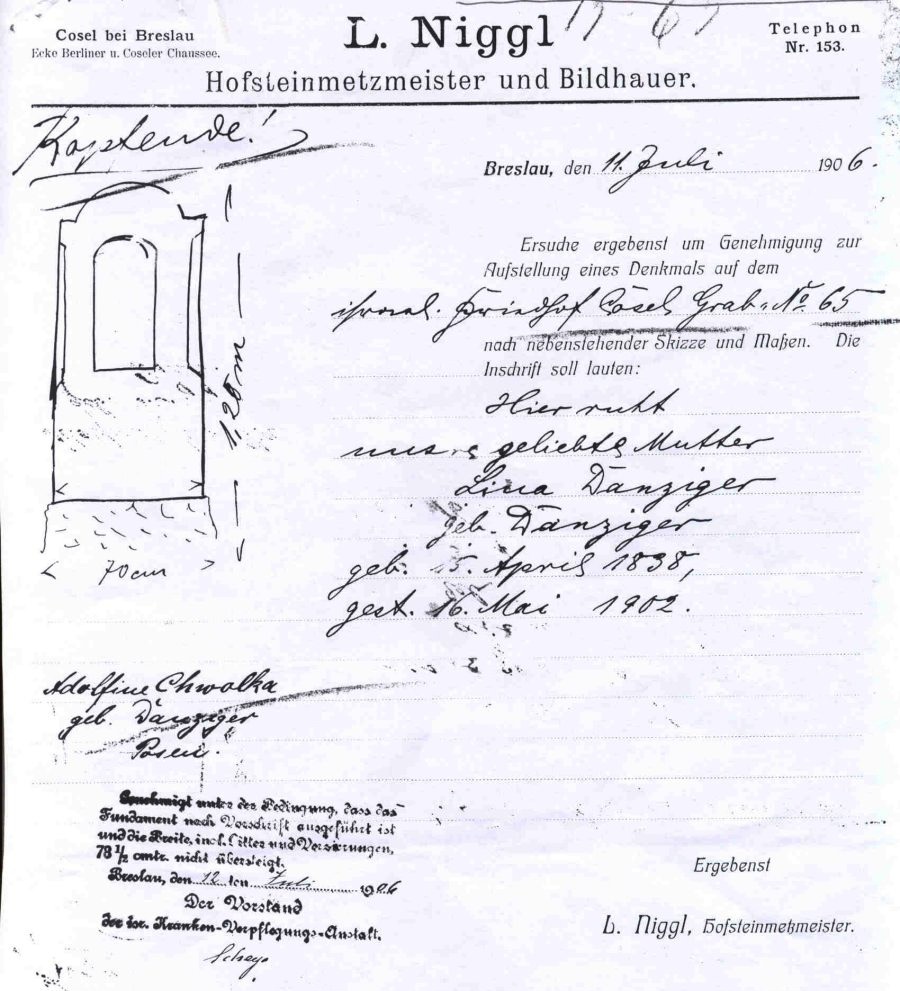 Cosel bei Breslau
Ecke Berliner u. Coseler Chaussee.
L. Niggl
Hofsteinmetzmeister und Bildhauer.
Telephon
Nr. 153.
Kopfende!
Breslau, den 11. Juli 1906.
Ersuche ergebenst um Genehmigung zur
Aufstellung eines Denkmals auf dem
israel. Friedhof Cosel Grab No. 65
nach nebenstehender Skizze und Maßen. Die
Inschrift soll lauten:
Hier ruht
unsre geliebte Mutter
Lina Danziger
geb. Danziger
geb. 15. April 1838,
gest. 16. Mai 1902.
1,20 m
70 cm
Adolfine Chwolka
geb. Danziger
Posen.
Genehmigt unter der Bedingung, dass das
Fundament nach Vorschrift ausgeführt ist
und die Breite, incl. Gitter und Verzierungen,
78 1/2 cmtr. nicht übersteigt.
Breslau, den 12 ten Juli 1906
Der Vorstand
der isr. Kranken-Verpflegungs-Anstalt.
Ergebenst
L. Niggl, Hofsteinmetzmeister.